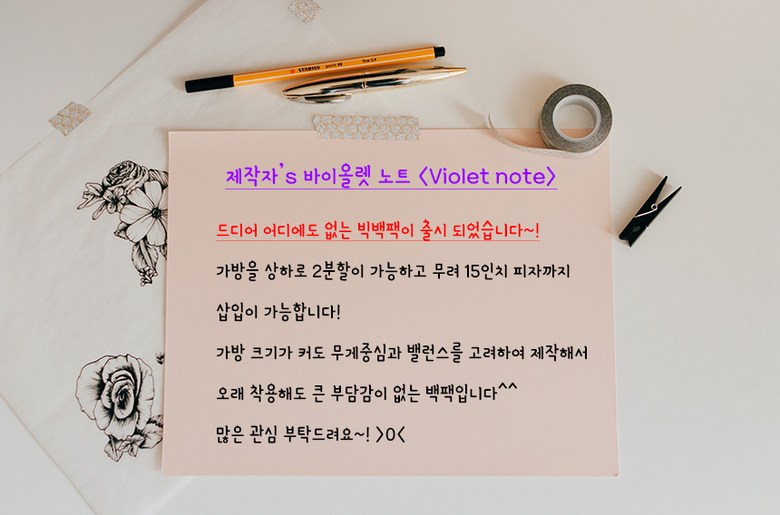 STABILO point 88 fine 0,4
제작자's 바이올렛 노트 <Violet note>
드디어 어디에도 없는 빅백팩이 출시 되었습니다~!
가방을 상하로 2분할이 가능하고 무려 15인치 피자까지
삽입이 가능합니다!
가방 크기가 커도 무게중심과 밸런스를 고려하여 제작해서
오래 착용해도 큰 부담감이 없는 백팩입니다^^
많은 관심 부탁드려요~! >0<